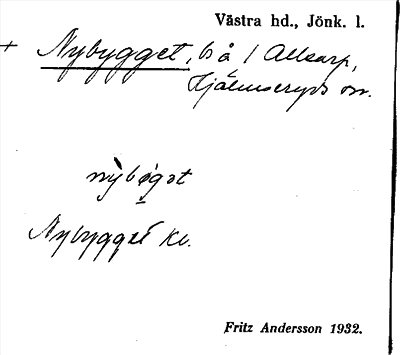 Västra hd., Jönk. l.
+ Nybygget, bs å 1 Allsarp,
Hjälmseryds sn.
nỳbøgət
Nybygget Kv.
Fritz Andersson 1932.